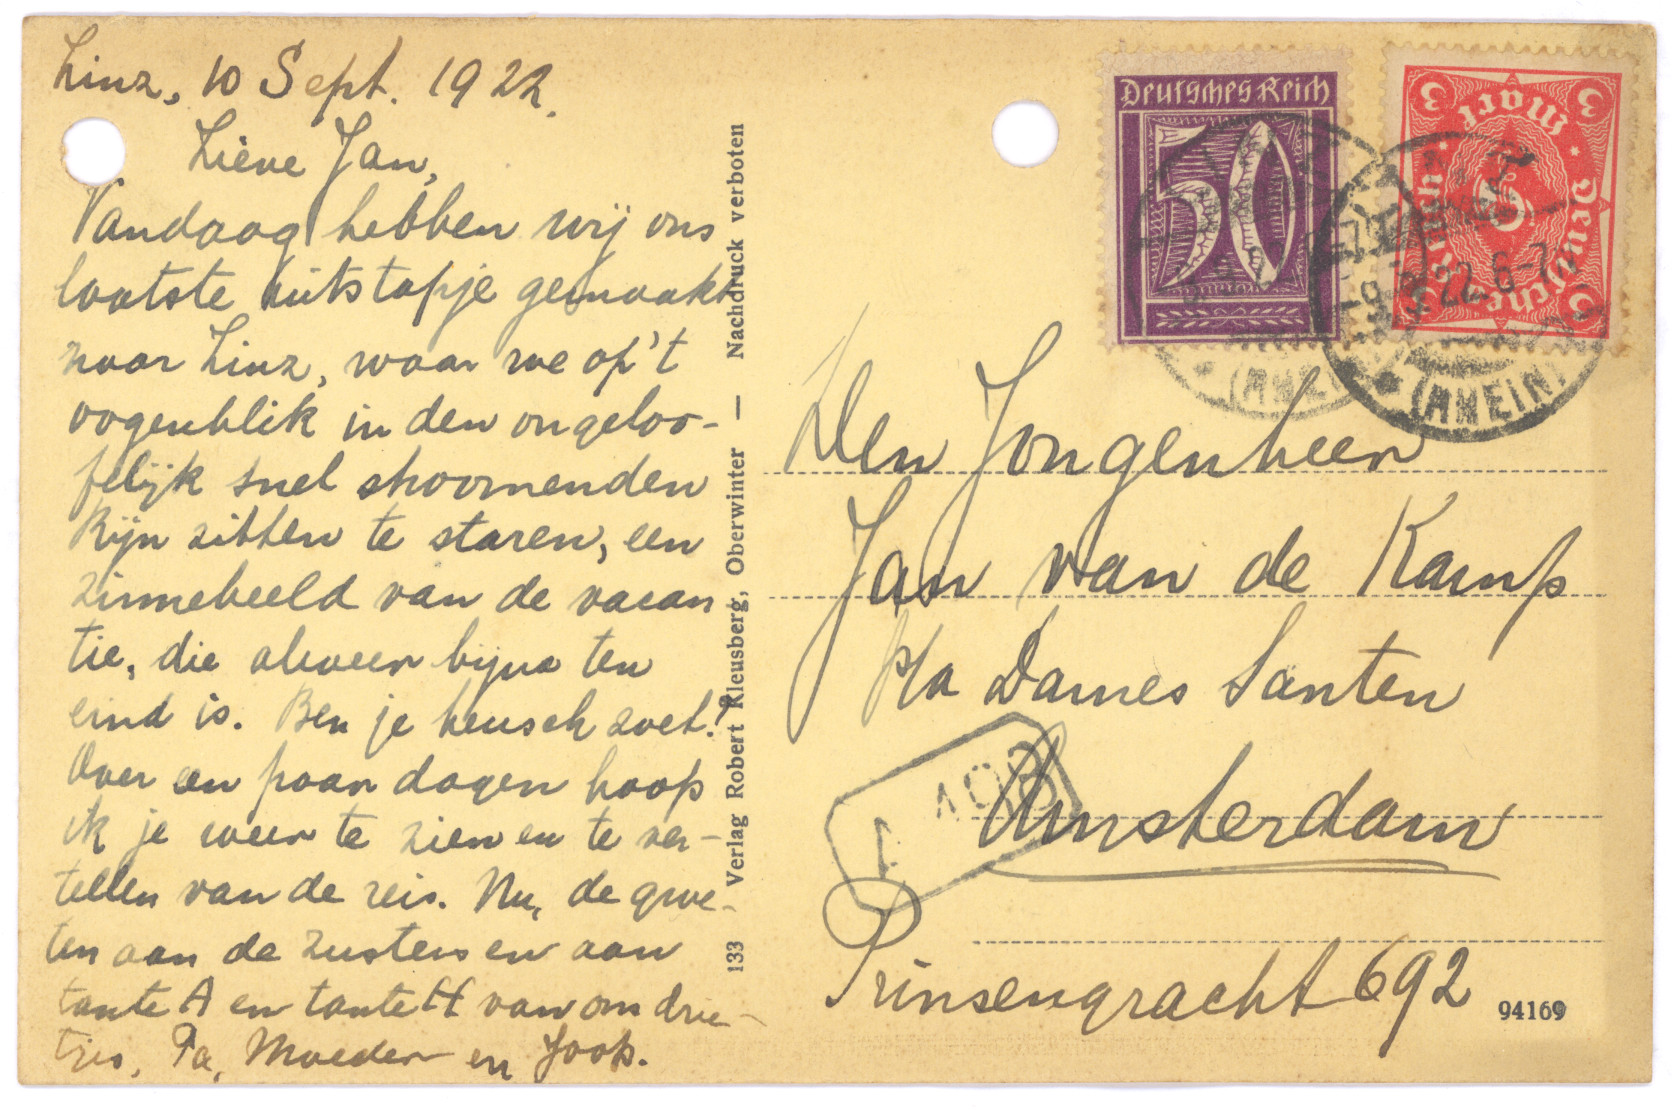 Linz, 10 Sept. 1922.
Lieve Jan,
Vandaag hebben wij ons
laatste uitstapje gemaakt
naar Linz, waar we op 't
oogenblik in den ongeloo-
felijk snel stroomenden
Rijn zitten te staren, een
zinnebeeld van de vacan
tie, die alweer bijna ten
eind is. Ben je heusch zoet?
Over een paar dagen hoop
ik je weer te zien en te ver-
tellen van de reis. Nu, de groe-
ten aan de zusters en aan
tante A en tante H van ons drie-
tjes, Pa, Moeder en Joop.
133 Verlag Robert Kleusberg, Oberwinter — Nachdruck verboten
Deutsches Reich
50
3 Mark 3
Deutsches Reich
3
-9. 9. 22. 6-7
(RHEIN)
(RHEIN)
Den Jongenheer
Jan van de Kamp
p/a Dames Santen
Amsterdam
Prinsengracht 692
94169